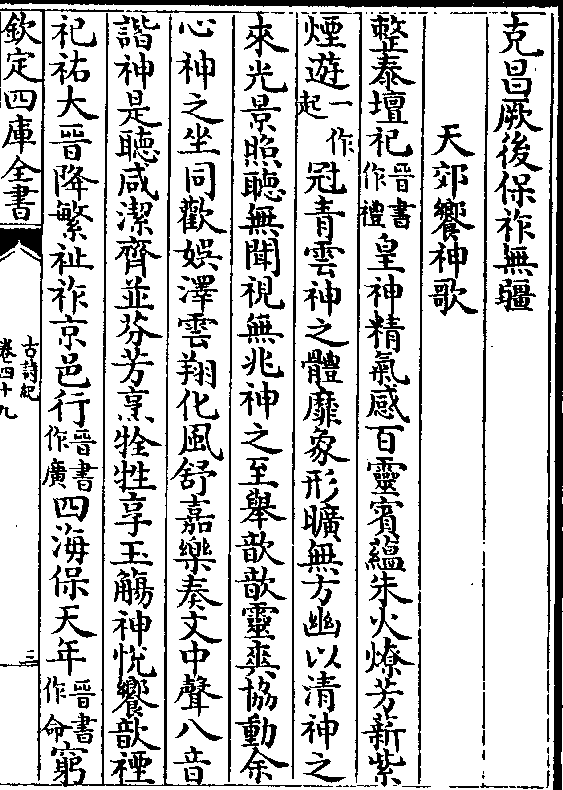 克昌厥後保祚無疆
天郊饗神歌
整泰壇祀晉書作禮皇神精氣感百靈賓蘊朱火燎芳薪紫
煙遊一作起冠青雲神之體靡象形曠無方幽以清神之
來光景照聽無聞視無兆神之至舉歆歆靈爽協動余
心神之坐同歡娛澤雲翔化風舒嘉樂奏文中聲八音
諧神是聽咸潔齊並芬芳烹牷牲享玉觴神悅饗歆禋
祀祐大晉降繁祉祚京邑行晉書作廣四海保天年晉書作命窮
欽定四庫全書
古詩紀
卷四十九
三